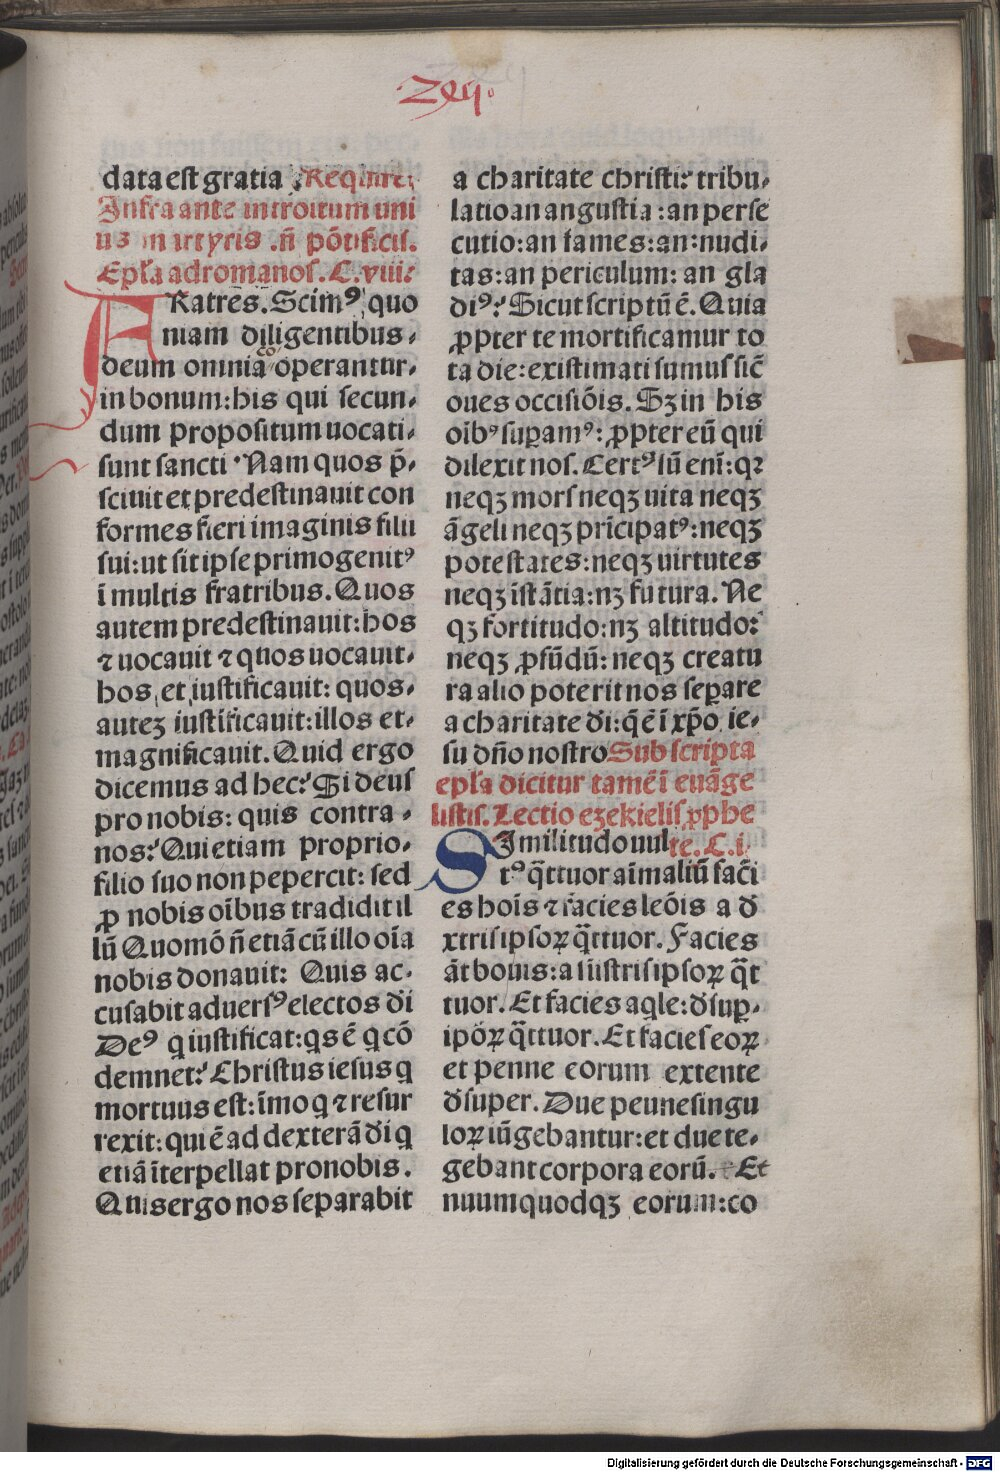 zxij.
data est gratia . Require
Infra ante introitum uni
us martyris .n̄ põtificis.
Epl̃a ad romanos. C. viii:
FRatres. Scimꝰ quo
niam diligentibus,
deum omnia cooperantur,
in bonum: his qui secun,
dum propositum uocati,
sunt sancti. Nam quos p̄,
sciuit et predestinauit con
formes fieri imaginis filii
sui: ut sit ipse primogenitꝰ
ĩ multis fratribus. Quos
autem predestinauit: hos
⁊ uocauit ⁊ quos uocauit,
hos, et iustificauit: quos,
auteꝫ iustificauit: illos et,
magnificauit. Quid ergo
dicemus ad hec? Si deus
pro nobis: quis contra,
nos? Qui etiam proprio,
filio suo non pepercit: sed
ꝓ nobis oĩbus tradidit il
lũ Quomõ n̄ etiã cũ illo oĩa
nobis donauit: Quis ac,
cusabit aduersꝰ electos d̃i
Deꝰ q iustificat: qs ẽ q cõ
demnet? Christus iesus q
mortuus est: ĩmo q ⁊ resur
rexit: qui ẽ ad dexterã d̃i q
etiã ĩterpellat pro nobis.
Quis ergo nos separabit
a charitate christi? tribu,
latio an angustia: an perse
cutio: an fames: an: nudi,
tas: an periculum: an gla
diꝰ? Sicut scriptũ ẽ. Quia
ꝓpter te mortificamur to
ta die: existimati sumus sic̃
oues occisiõis. Sꝫ in his
oĩbꝰ suꝑamꝰ: ꝓpter eũ qui
dilexit nos. Certꝰ sũ enĩ: qꝛ
neqꝫ mors neqꝫ uita neqꝫ
ãgeli neqꝫ prĩcipatꝰ: neqꝫ
potestates: neqꝫ uirtutes
neqꝫ ĩstãtia: nꝫ futura. Ne
qꝫ fortitudo: nꝫ altitudo:
neqꝫ ꝓfũdũ: neqꝫ creatu
ra alio poterit nos separe
a charitate d̃i: q̃ ẽ ĩ xp̃o ie,
su dño nostro Sub scripta
epl̃a dicitur tamẽ ĩ euãge
listis. Lectio ezekielis ꝓphe
te. C. i
SImilitudo uul
tꝰ q̃ttuor aĩmaliũ faci
es hoĩs ⁊ facies leõis a d̃
xtris ipsoꝝ q̃ttuor. Facies
ãt bouis: a sĩistris ipsoꝝ q̃t
tuor. Et facies aqle: d̃suꝑ,
ipõꝝ q̃ttuor. Et facies eoꝝ
et penne eorum extente
d̃super. Due peune singu
loꝝ iũgebantur: et due te,
gebant corpora eorũ. Et
nuumquodqꝫ eorum: co
Digitalisierung gefördert durch die Deutsche Forschungsgemeinschaft - DFG